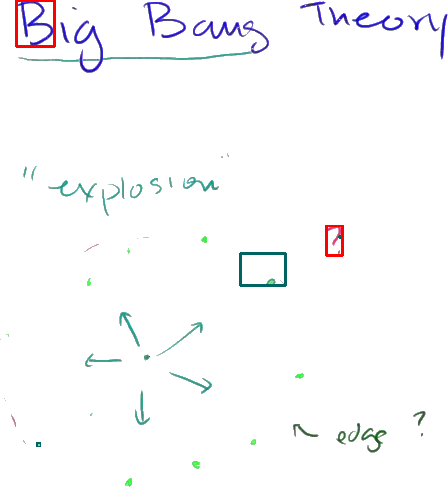 Big Bang Theory
"explosion"
edge ?